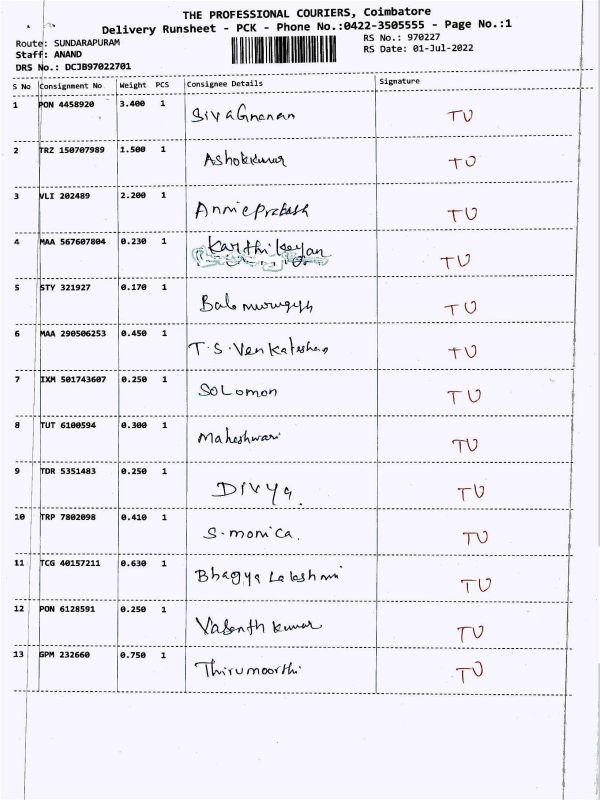 THE PROFESSIONAL COURIERS, Coimbatore
Delivery Runsheet - PCK - Phone No.:0422-3505555 - Page No.:1
Route: SUNDARAPURAM RS No.: 970227
Staff: ANAND RS Date: 01-Jul-2022
DRS No.: DCJB97022701
S No Consignment No Weight PCS Consignee Details Signature
1 PON 4458920 3.400 1 SivaGnanan TU
2 TRZ 150707989 1.500 1 Ashokkumar TU
3 VLI 202489 2.200 1 Annieprakash TU
4 MAA 567607804 0.230 1 Karthikeyan TU
5 STY 321927 0.170 1 TU
6 MAA 290506253 0.450 1 T.S.Venkateshan TU
7 IXM 501743607 0.250 1 SoLomon TU
8 TUT 6100594 0.300 1 Maheshwari TU
9 TDR 5351483 0.250 1 DIVya. TU
10 TRP 7802098 0.410 1 S.monica. TU
11 TCG 40157211 0.630 1 Bhagya Lakshmi TU
12 PON 6128591 0.250 1 Vasanth kumar TU
13 GPM 232660 0.750 1 Thirumoorthi TU